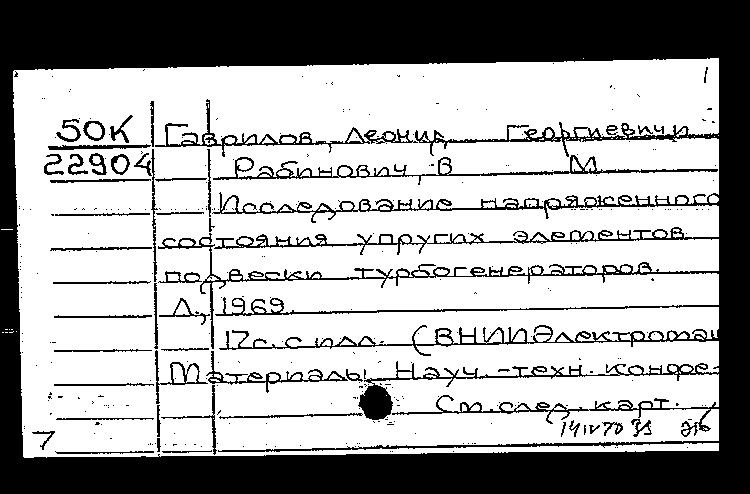 1
50К Гаврилов, Леонид Георгиевич, и
22904 Рабинович, В М
Исследование напряженного
состояния упругих элементов
подвески турбогенераторов.
Л., 1969.
17с. с илл. (ВНИИЭлектромаш
Материалы Науч.-техн. конфе-
См. след. карт.
14 IV 70
7